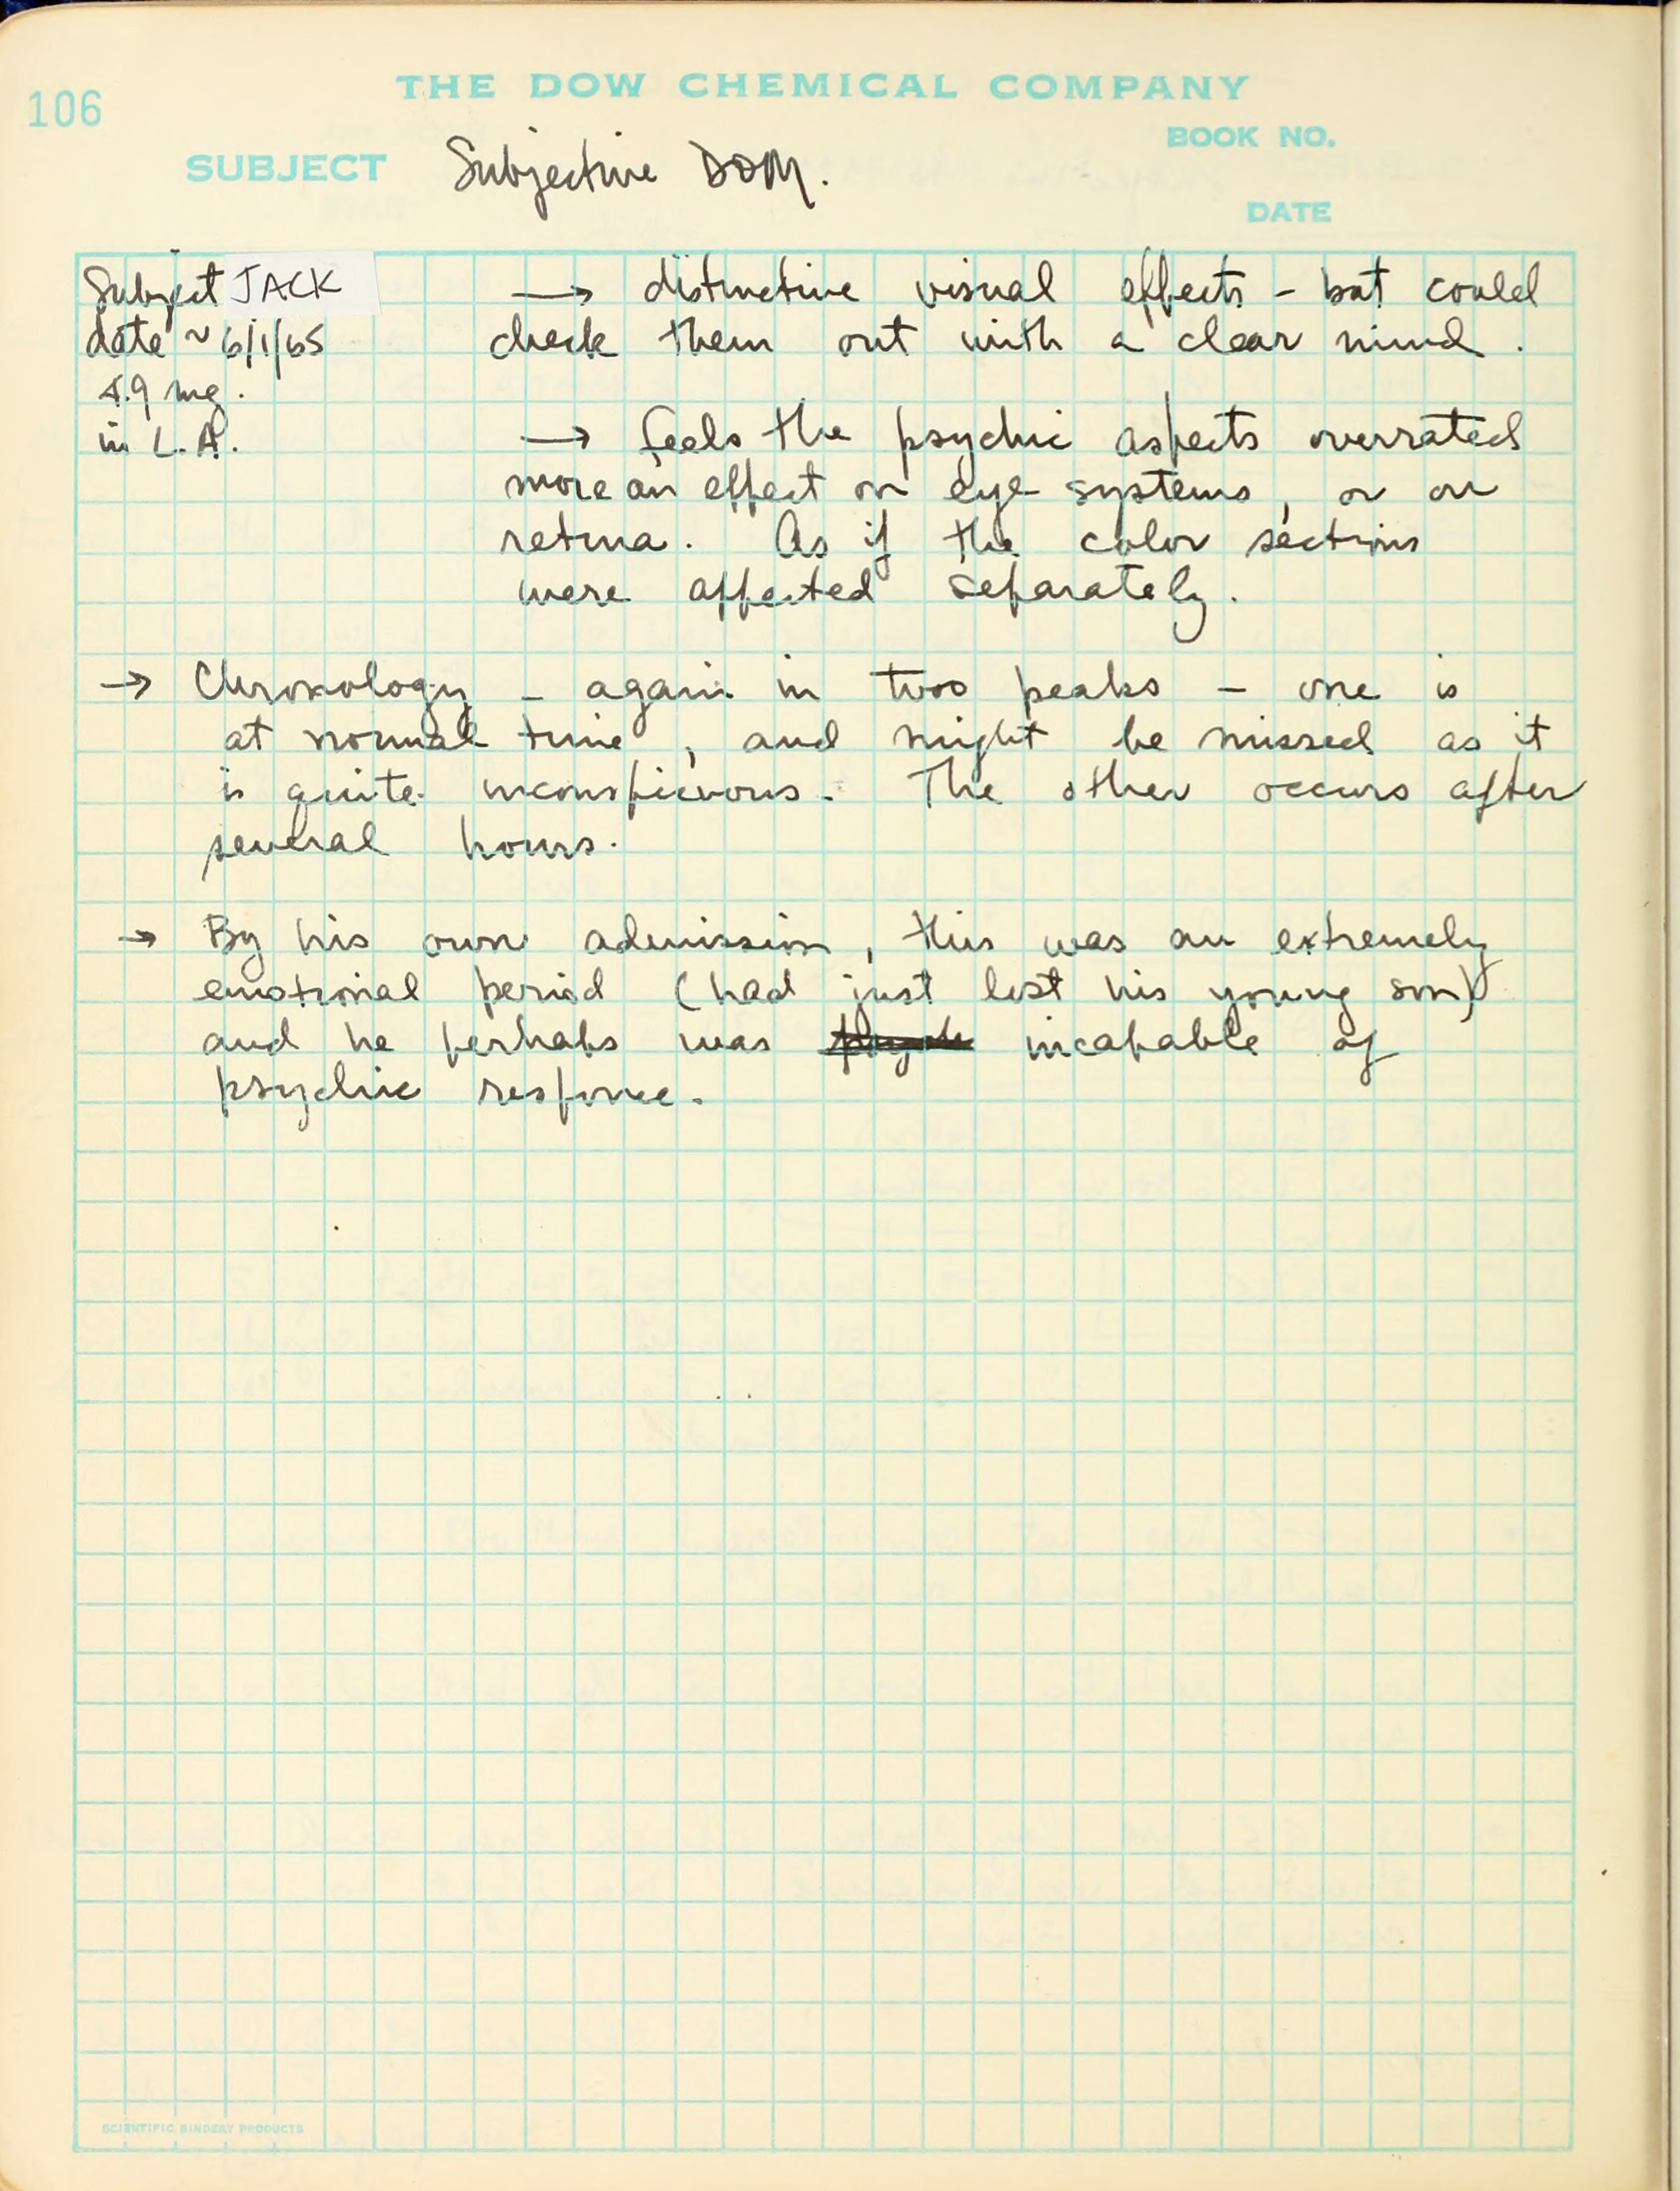 106
THE DOW CHEMICAL COMPANY
BOOK NO.
SUBJECT Subjective DOM.
DATE
Subject JACK
date ~ 6/1/65
4.9 mg.
in L.A.
→ distinctive visual effects - but could
check them out with a clear mind.
→ feels the psychic aspects overrated
more an effect on eye systems, or on
retina. As if the color sections
were affected separately.
→ Chronology - again in two peaks - one is
at normal time, and might be missed as it
is quite inconspicuous. The other occurs after
several hours.
→ By his own admission, this was an extremely
emotional period (had just lost his young son)
and he perhaps was incapable of
psychic responce.
SCIENTIFIC BINDERY PRODUCTS